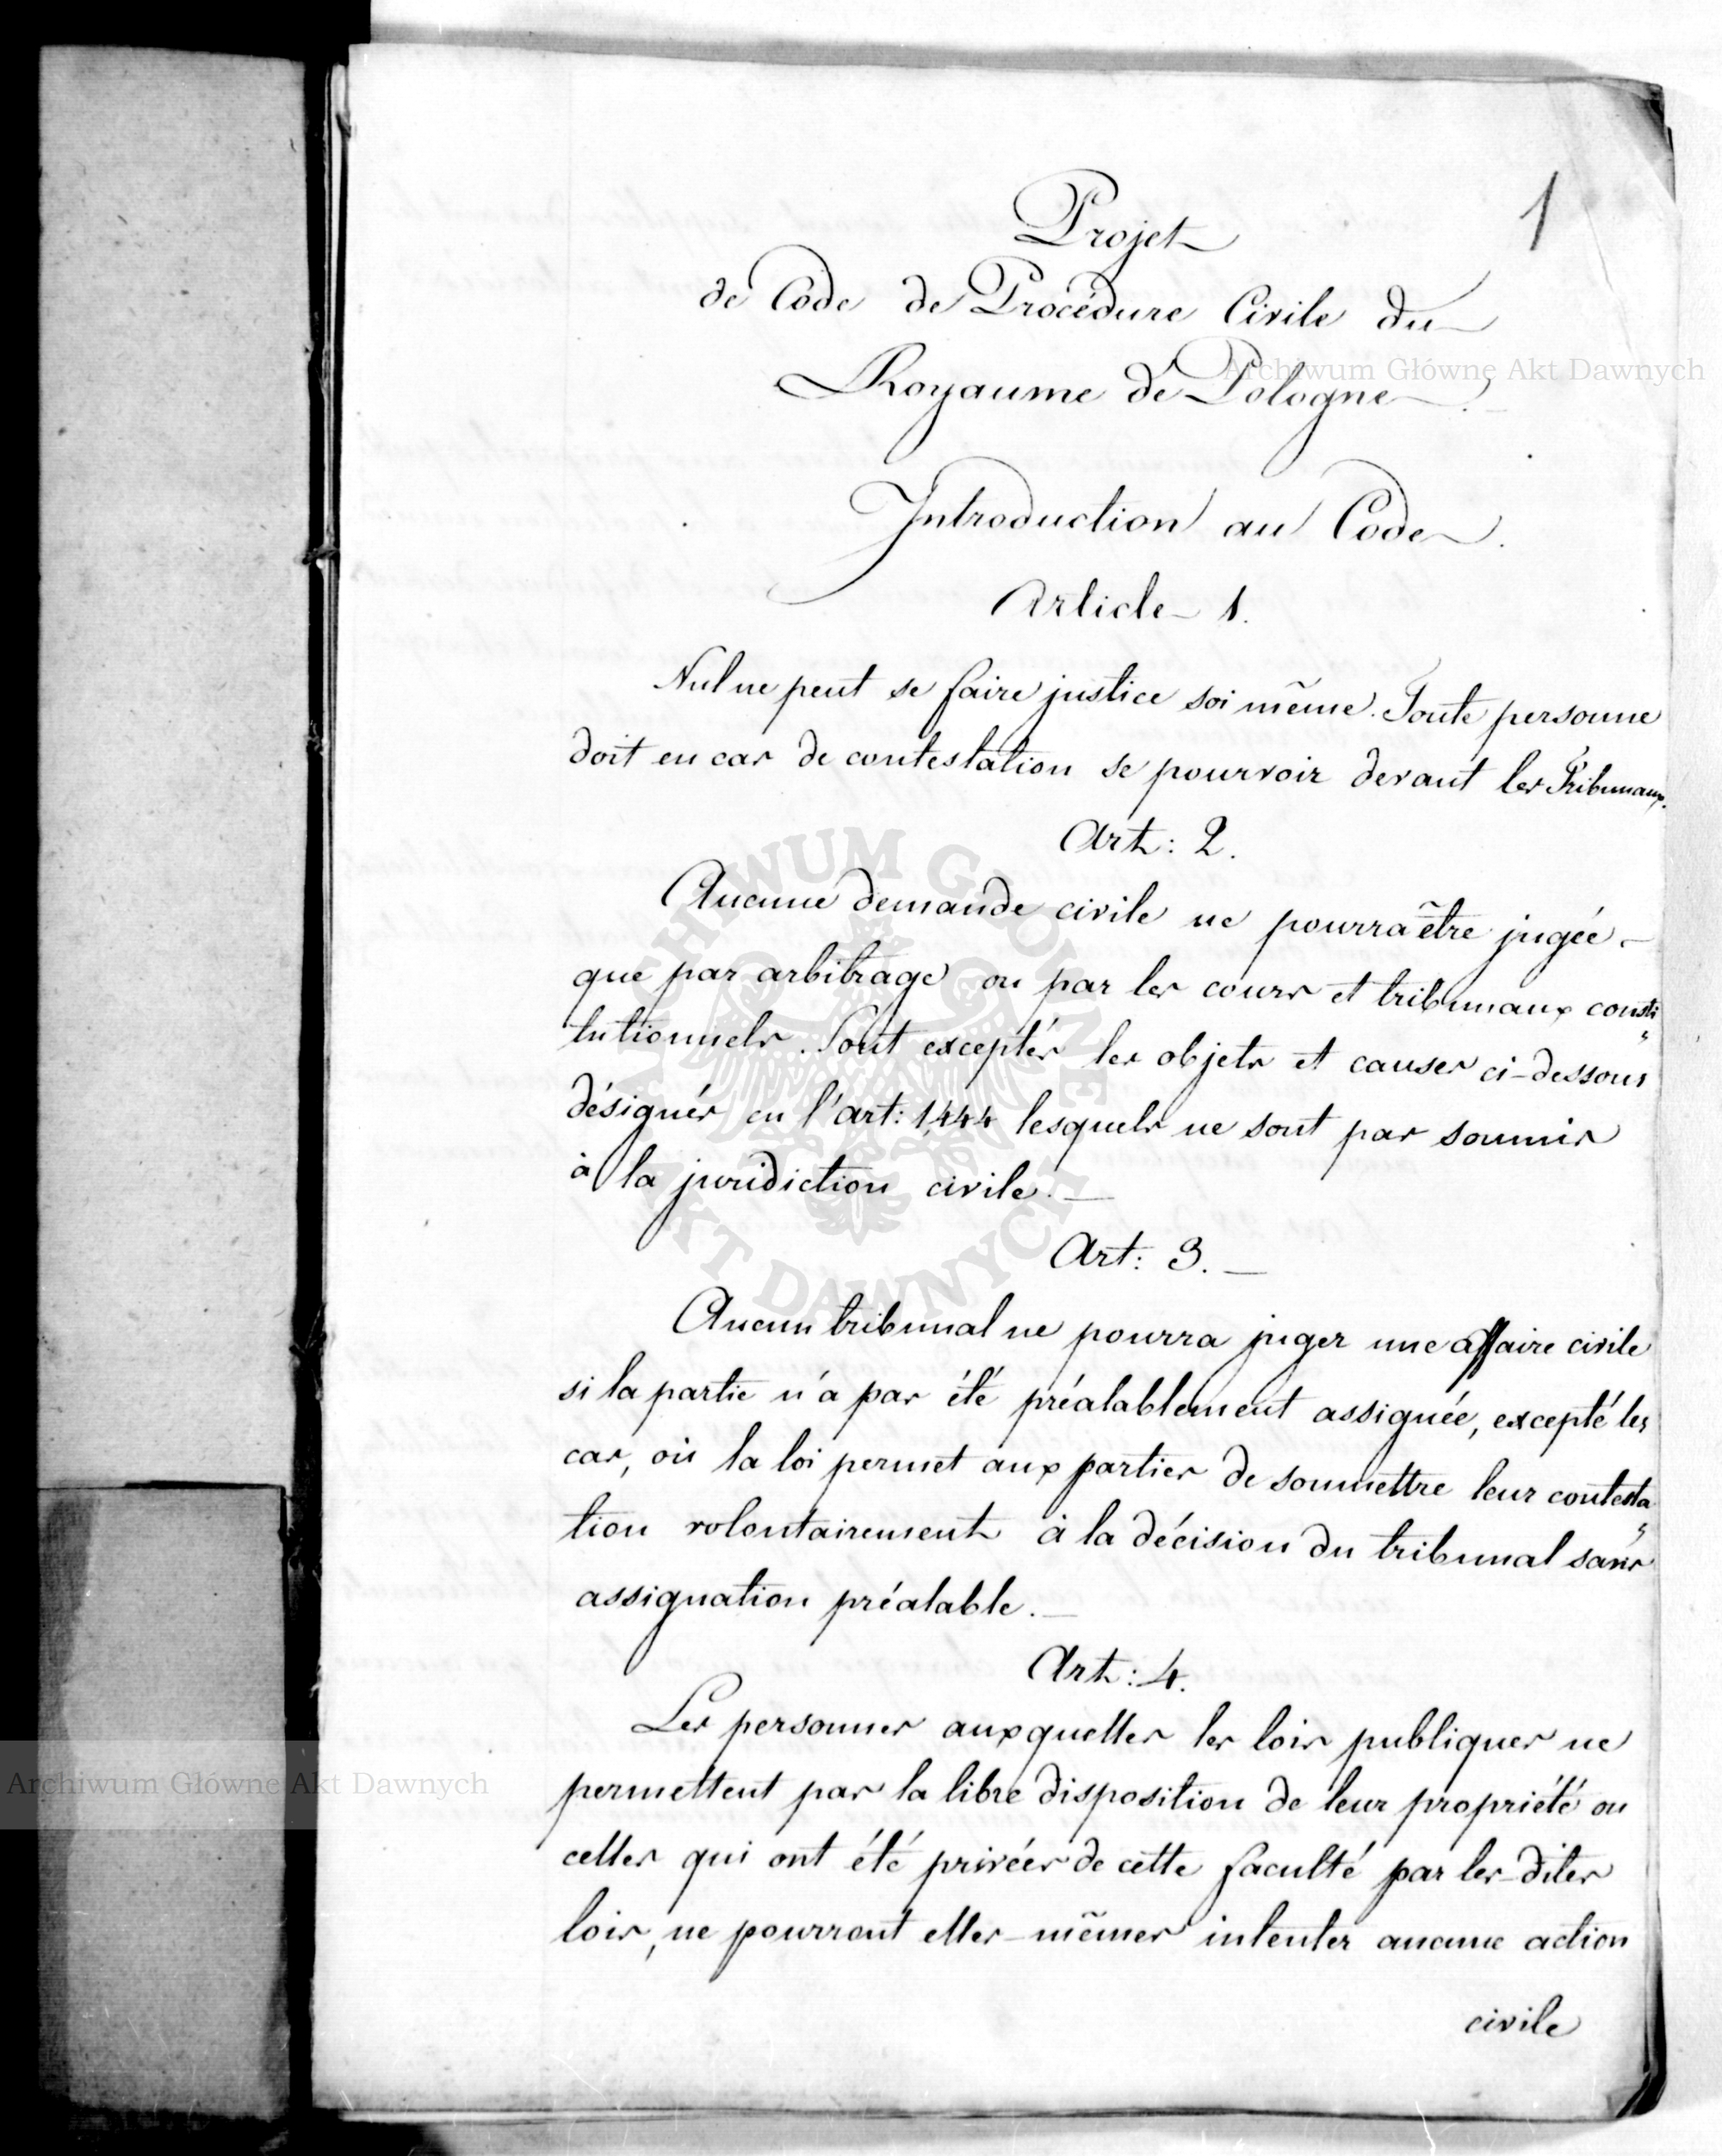 1
Projet
de Code de Procédure Civile du
Royaume de Pologne.
Introduction au Code.
Article 1.
Nul ne peut se faire justice soi même. Toute personne
doit en cas de contestation se pourvoir devant les Tribunaux.
Art: 2.
Aucune demande civile ne pourra être jugée
que par arbitrage ou par les cours et tribunaux consti
tutionnels. Sont exceptés les objets et causes ci-dessous
désignés en l'art: 1,444 lesquels ne sont pas soumis
à la juridiction civile.
Art: 3.
Aucun tribunal ne pourra juger une affaire civile
si la partie n'a pas été préalablement assignée, excepté les
cas, où la loi permet aux parties de soumettre leur contesta
tion volontairement à la décision du tribunal sans
assignation préalable.
Art: 4.
Les personnes auxquelles les lois publiques ne
permettent pas la libre disposition de leur propriété ou
celles qui ont été privées de cette faculté par les-dites
lois, ne pourront elles-mêmes intenter aucune action
civile
Archiwum Główne Akt Dawnych
ARCHIWUM GŁÓWNE AKT DAWNYCH
Archiwum Główne Akt Dawnych